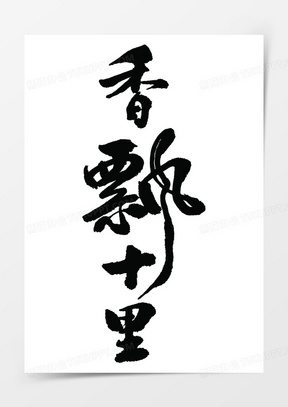 香飘十里